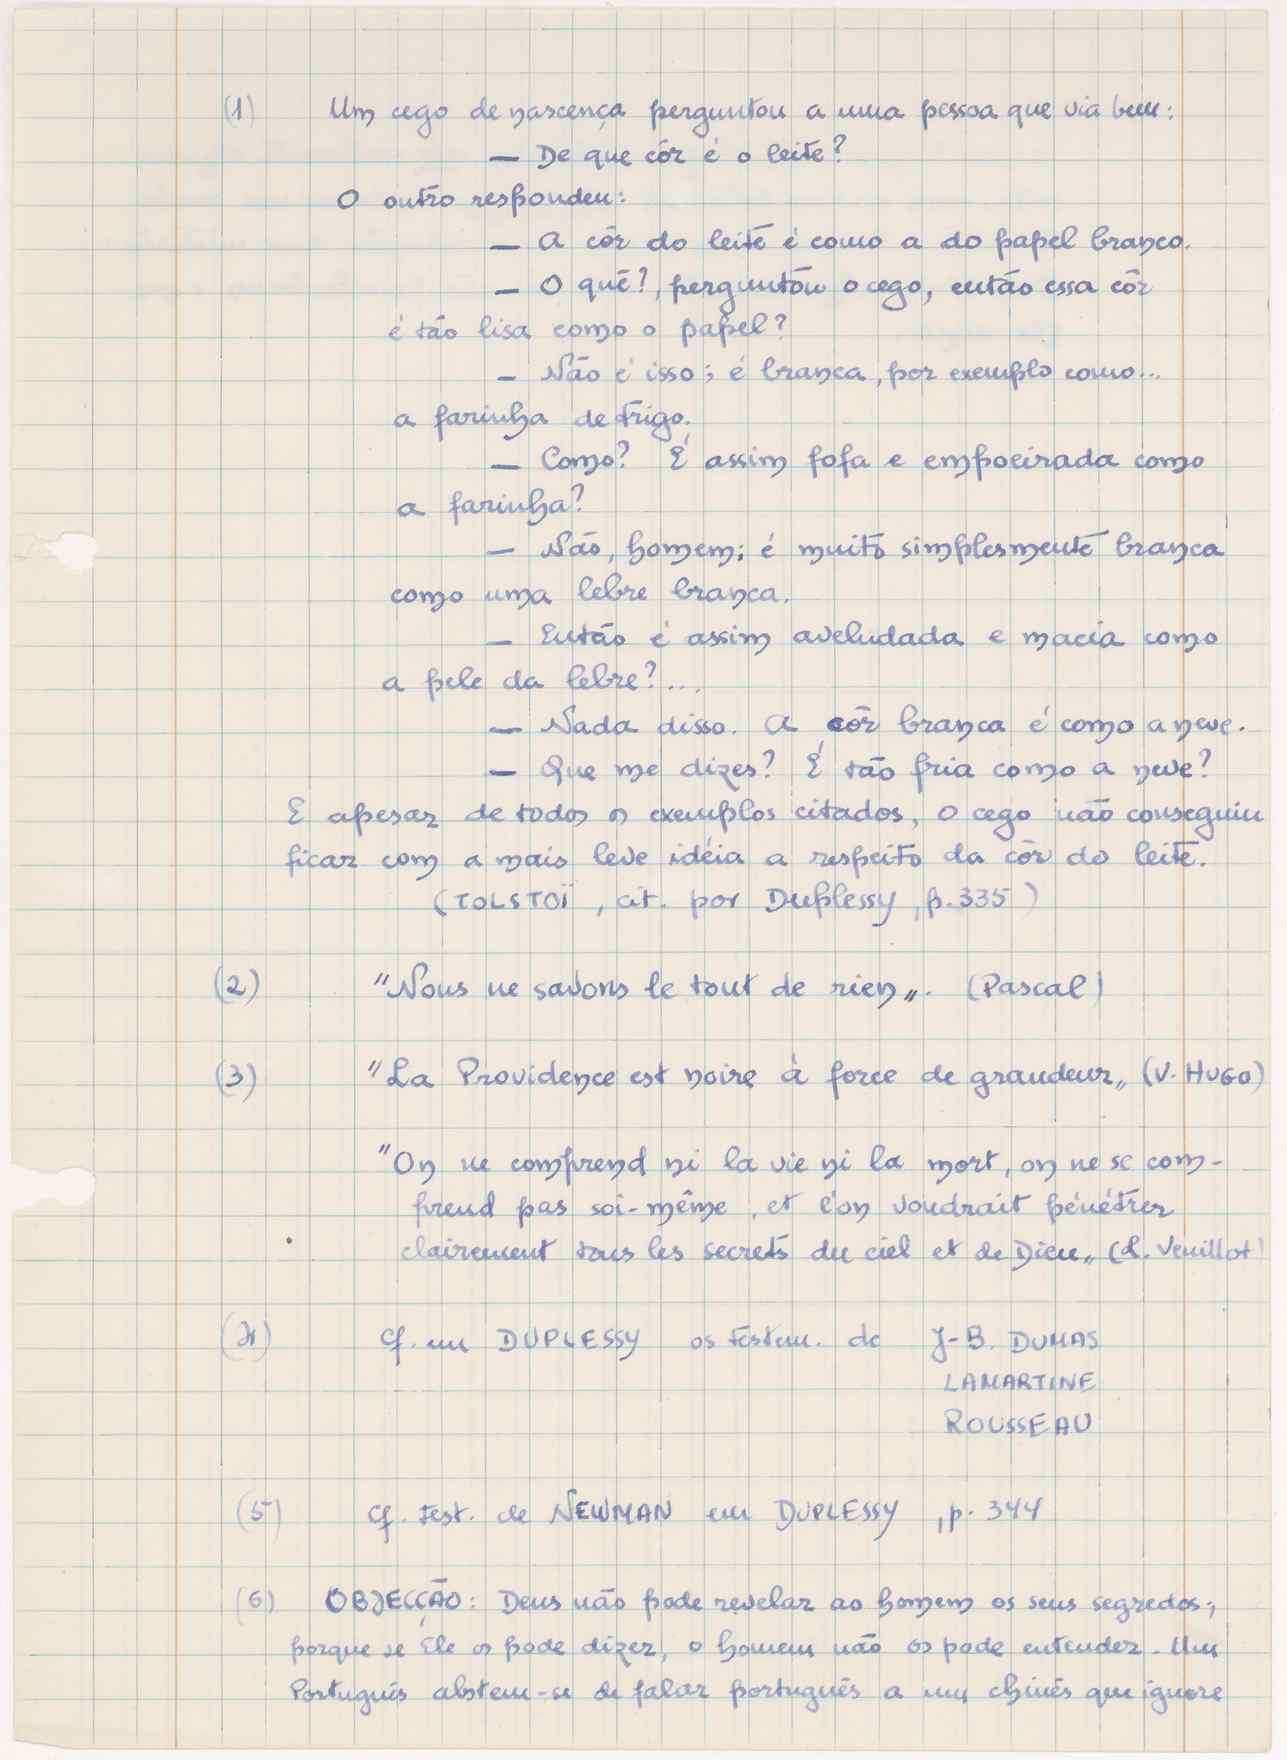 (1) Um cego de nascença perguntou a uma pessoa que via bem:
— De que côr é o leite?
O outro respondeu:
— A côr do leite é como a do papel branco.
— O quê?, perguntou o cego, então essa côr
é tão lisa como o papel?
— Não é isso; é branca, por exemplo como...
a farinha de trigo.
— Como? É assim fofa e empoeirada como
a farinha?
— Não, homem; é muito simplesmente branca
como uma lebre branca.
— Então é assim aveludada e macia como
a pele da lebre?...
— Nada disso. A côr branca é como a neve.
— Que me dizes? É tão fria como a neve?
E apesar de todos os exemplos citados, o cego não conseguiu
ficar com a mais leve idéia a respeito da côr do leite.
(TOLSTOÏ, cit. por Duplessy, p. 335)
(2) "Nous ne savons le tout de rien„. (Pascal)
(3) "La Providence est noire à force de grandeur„ (V. HUGO)
"On ne comprend ni la vie ni la mort, on ne se com-
prend pas soi-même, et l'on voudrait pénétrer
clairement tous les secrets du ciel et de Dieu„ (L. Veuillot)
(4) Cf. em DUPLESSY os testem. de J-B. DUMAS
LAMARTINE
ROUSSEAU
(5) Cf. test. de NEWMAN em DUPLESSY, p. 344
(6) OBJECÇÃO: Deus não pode revelar ao homem os seus segredos;
porque se Ele os pode dizer, o homem não os pode entender. Um
Português abstem-se de falar português a um chinês que ignore